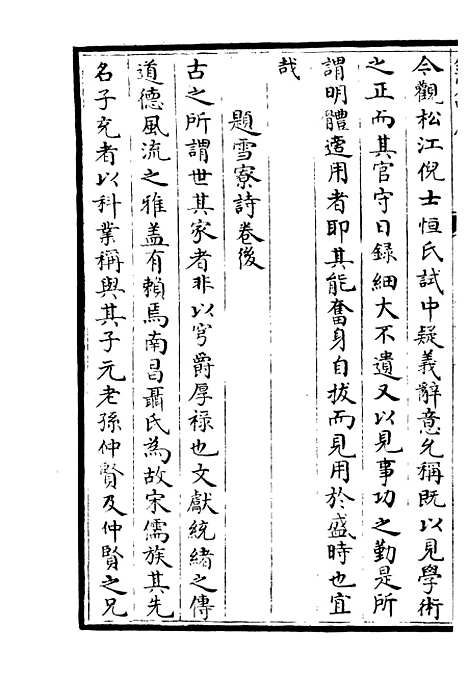 今觀松江倪士恒氏試中疑義辭意允稱既以見學術
之正而其官守日錄細大不遺又以見事功之勤是所
謂明體適用者即其能奮身自拔而見用於盛時也宜
哉
題雪寮詩卷後
古之所謂世其家者非以穹爵厚祿也文獻統緒之傳
道德風流之雅盖有賴焉南昌聶氏為故宋儒族其先
名子充者以科業稱與其子元老孫仲賢及仲賢之兄